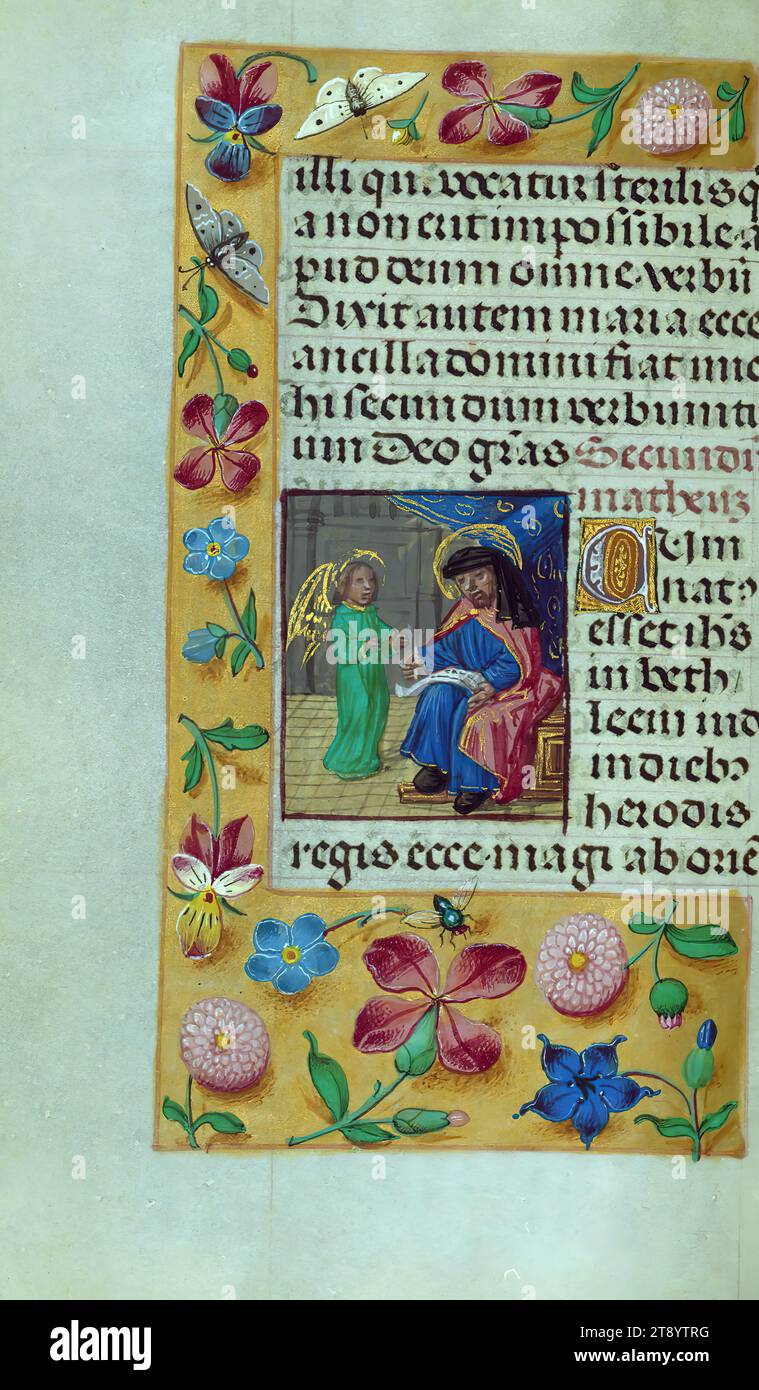 illi qui vocatur sterilis q
a non erit impossibile a
pud deum omne verbū
Dixit autem maria ecce
ancilla domini fiat mic
hi secundum verbum tu
um Deo gr̄as Secundū
matheuꝫ
Cum
natꝰ
esset ihs̄
in beth
leem iud
in diebꝰ
herodis
regis ecce magi ab oriē
alamy
Image ID: 2T8YTRG
www.alamy.com